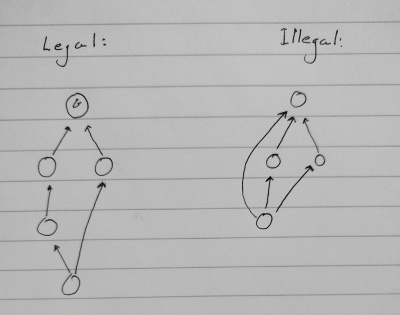 Legal:
Illegal: